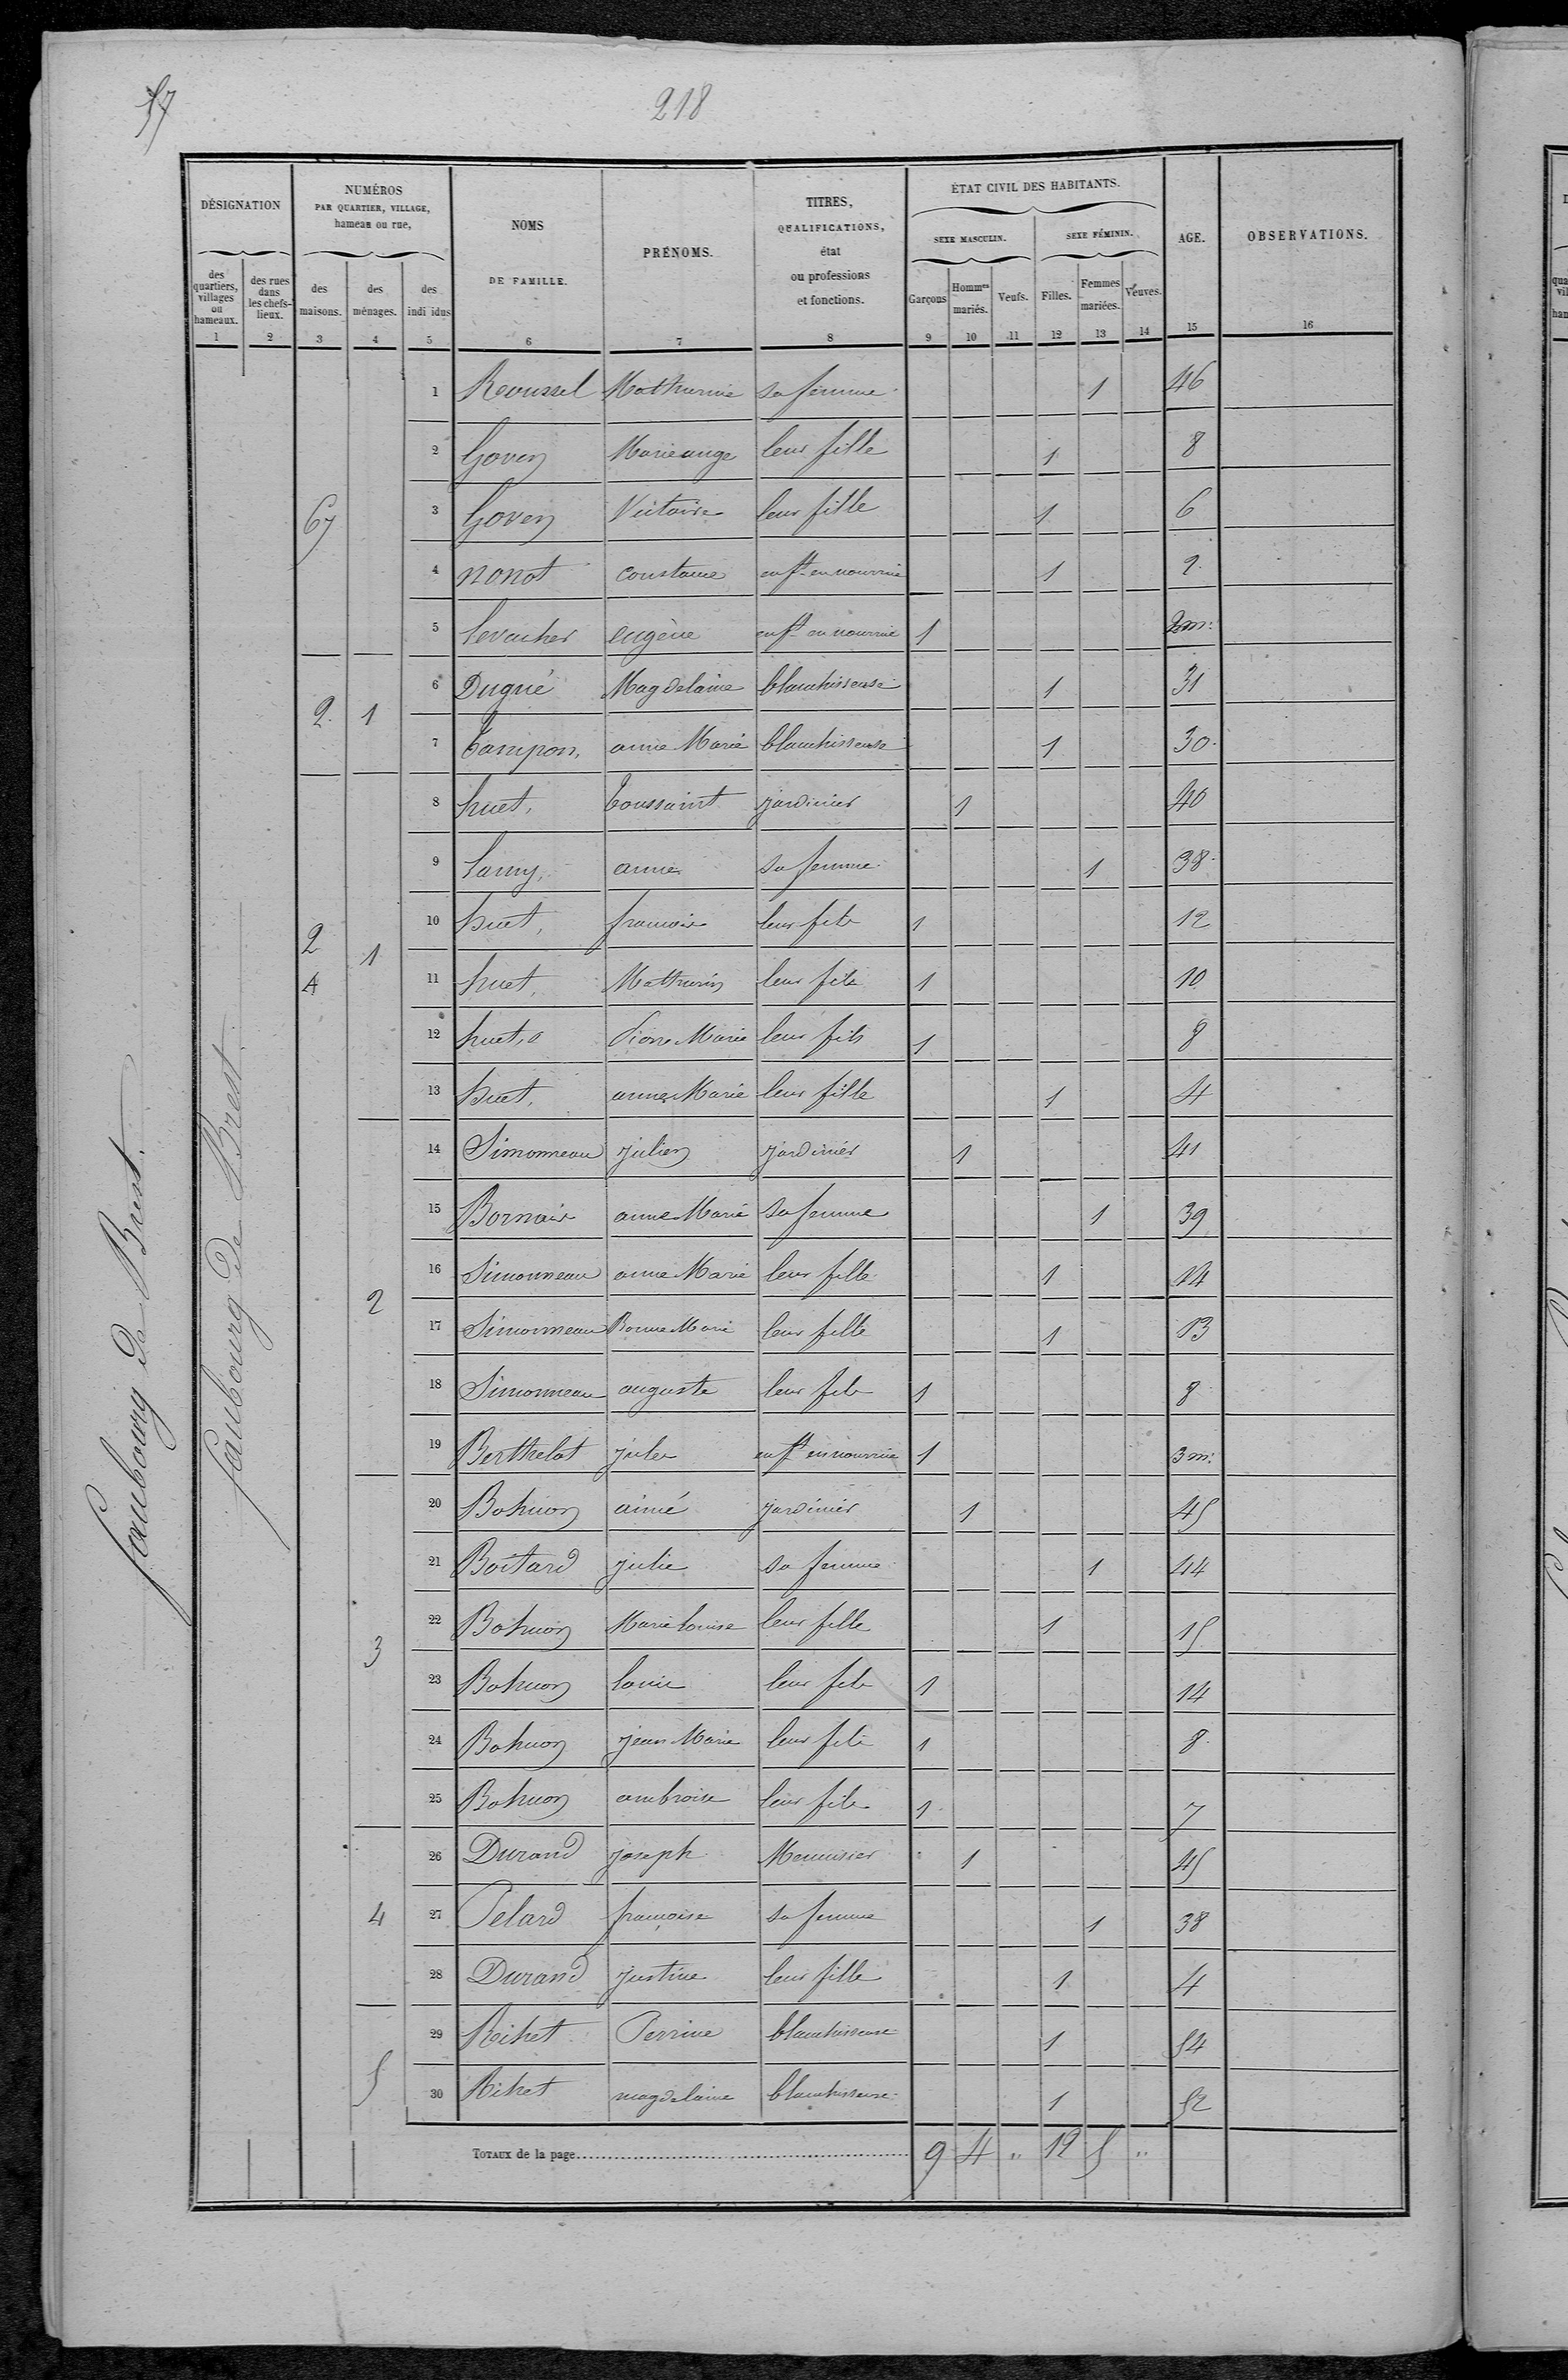 57
218
DÉSIGNATION
NUMÉROS
PAR QUARTIER, VILLAGE,
hameau ou rue,
NOMS
DE FAMILLE.
PRÉNOMS.
TITRES,
QUALIFICATIONS,
état
ou professions
et fonctions.
ÉTAT CIVIL DES HABITANTS.
SEXE MASCULIN.
SEXE FÉMININ.
AGE.
OBSERVATIONS.
des quartiers, villages ou hameaux.
des rues dans les chefs-lieux.
des maisons.
des ménages.
des indi idus
Garçons
Hommes mariés.
Veufs.
Filles.
Femmes mariées.
Veuves.
1 2 3 4 5 6 7 8 9 10 11 12 13 14 15 16
faubourg de Brest.
faubourg de Brest.
1 Reoussel Mathurine sa femme 1 46
2 Goven Marie ange leur fille 1 8
67
3 Goven Victoire leur fille 1 6
4 nonot constance enft en nourrice 1 2
5 Levacher eugène enft en nourrice 1 2 m:
6 Dugué Magdelaine blanchisseuse 1 31
2 1
7 Tampon, anne Marie blanchisseuse 1 30
8 huet, Toussaint jardinier 1 40
9 Lamy, anne sa femme 1 38
10 huet, francois leur fils 1 12
2 1
4
11 huet, Mathurin leur fils 1 10
12 huet, Pierre Marie leur fils 1 8
13 huet, anne Marie leur fille 1 4
14 Simonneau julien jardinier 1 41
15 Bornais anne Marie sa femme 1 39
16 Simonneau anne Marie leur fille 1 14
2
17 Simonneau Bonne Marie leur fille 1 13
18 Simonneau auguste leur fils 1 8
19 Berthelot jules enft en nourrice 1 3 m:
20 Bohuon aimé jardinier 1 45
21 Boitard julie sa femme 1 44
22 Bohuon Marie louise leur fille 1 15
3
23 Bohuon louis leur fils 1 14
24 Bohuon jean Marie leur fils 1 8
25 Bohuon ambroise leur fils 1 7
26 Durand joseph Menuisier 1 45
4 27 Pelard françoise sa femme 1 38
28 Durand justine leur fille 1 4
29 Rihet Perrine blanchisseuse 1 54
5
30 Rihet magdelaine blanchisseuse 1 52
TOTAUX de la page 9 4 " 12 5 "